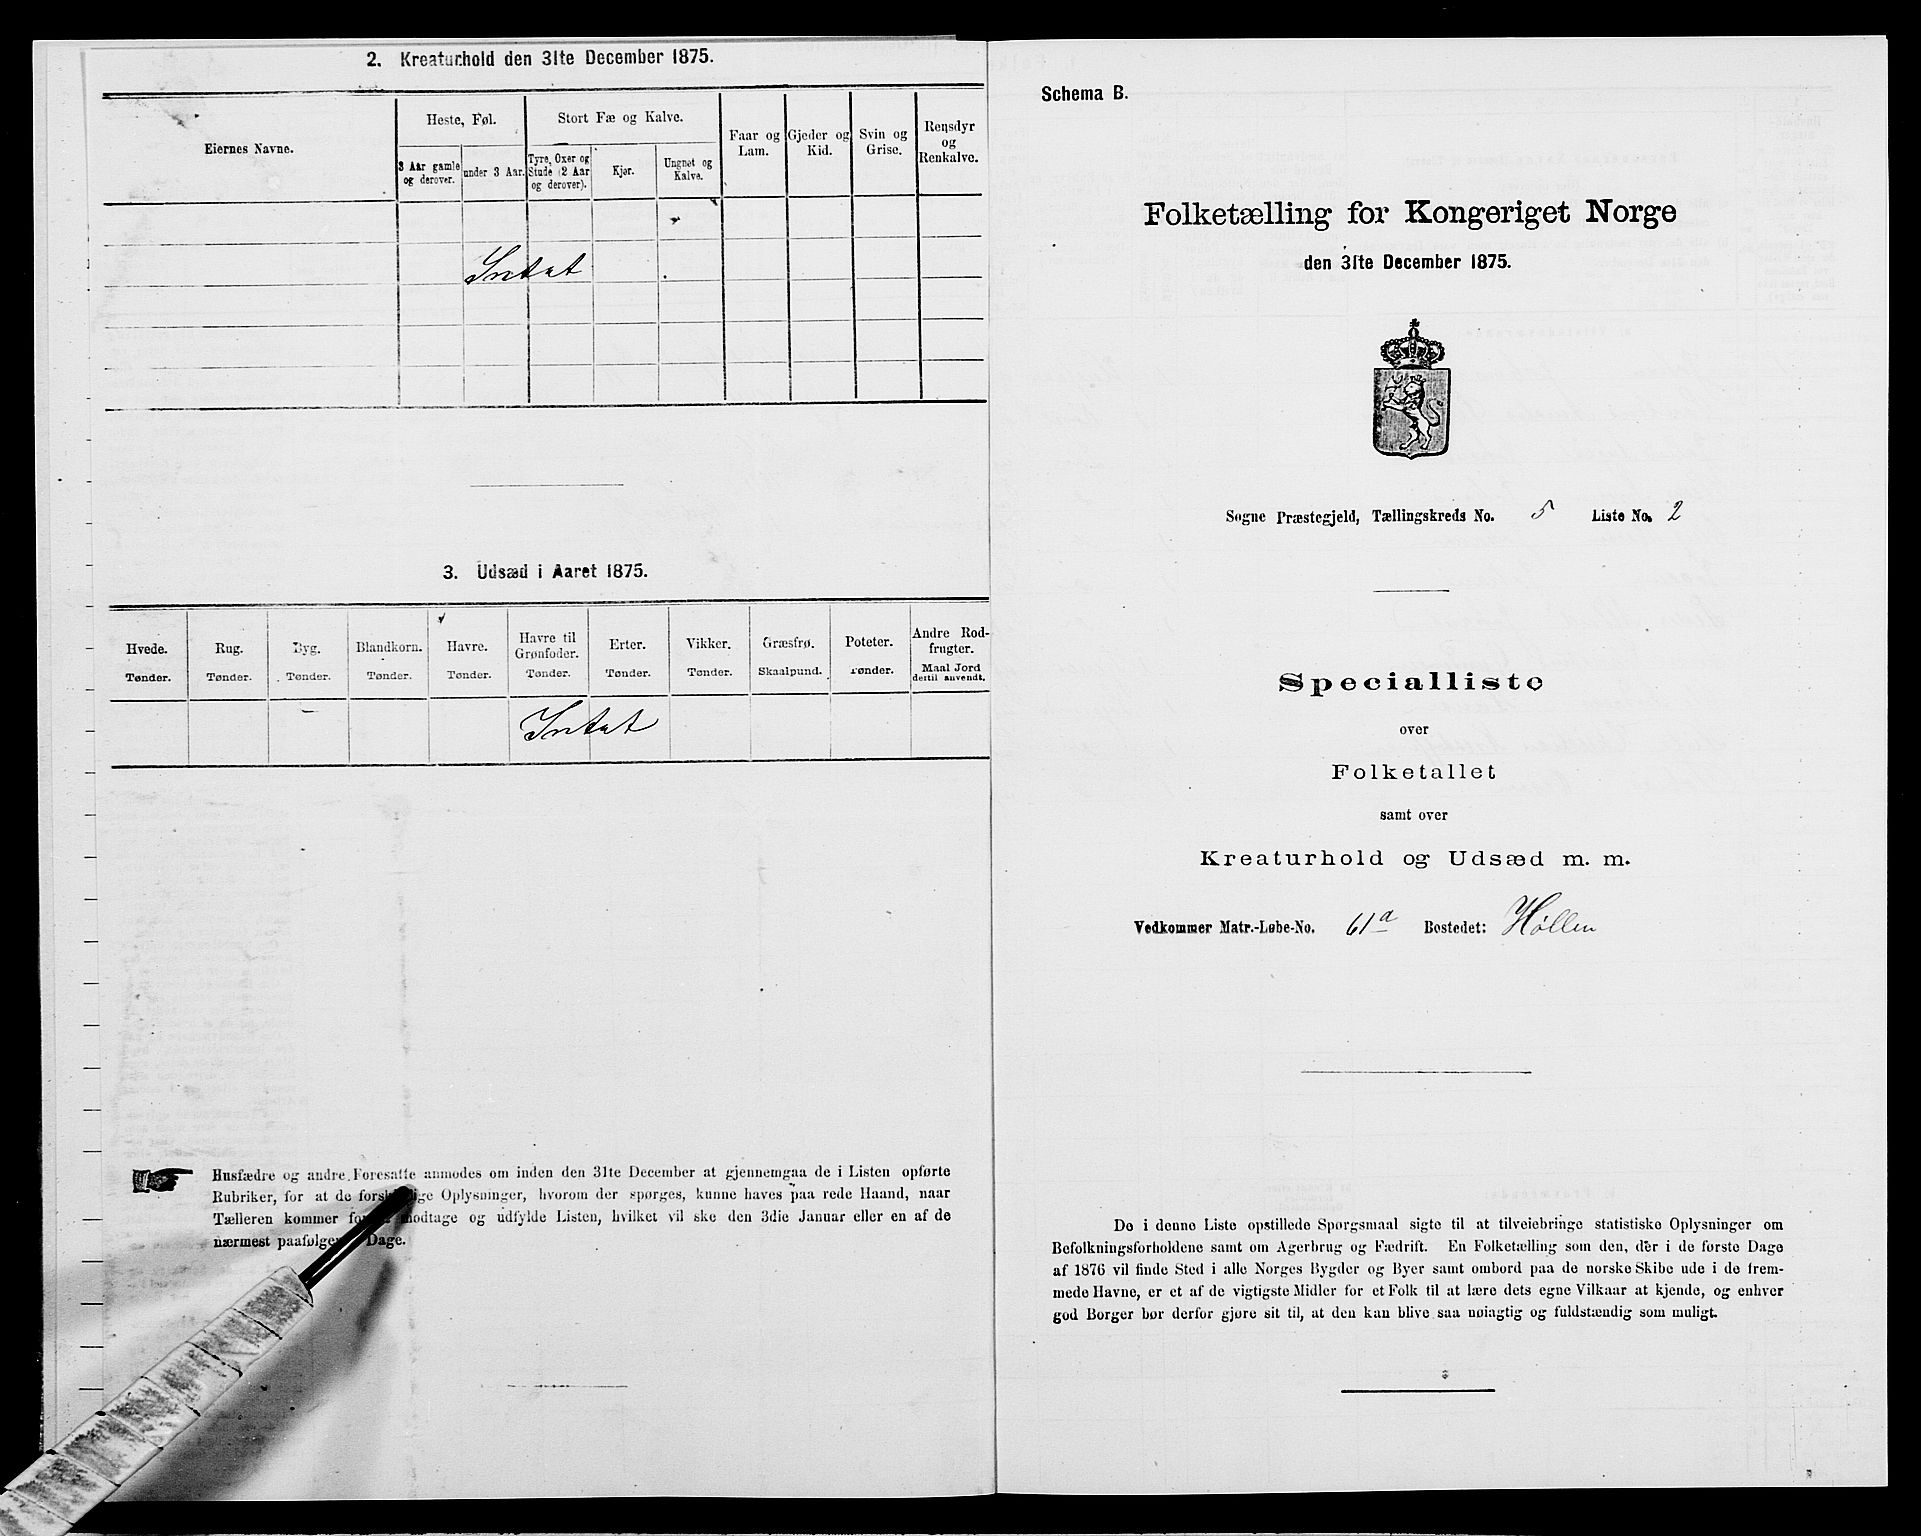 2. Kreaturhold den 31te December 1875.
Eiernes Navne.
Heste, Føl.
Stort Fæ og Kalve.
Faar og
Lam.
Gjeder og
Kid.
Svin og
Grise.
Rensdyr
og
Renkalve.
3 Aar gamle
og derover.
under 3 Aar.
Tyre, Oxer og
Stude (2 Aar
og derover).
Kjør.
Ungnet og
Kalve.
Intet
3. Udsæd i Aaret 1875.
Hvede.
Tønder.
Rug.
Tønder.
Byg.
Tønder.
Blandkorn.
Tønder.
Havre.
Tønder.
Havre til
Grønfoder.
Tønder.
Erter.
Tønder.
Vikker.
Tønder.
Græsfrø.
Skaalpund.
Poteter.
Tønder.
Andre Rod-
frugter.
Maal Jord
dertil anvendt.
Intet
Husfædre og andre Foresatte anmodes om inden den 31te December at gjennemgaa de i Listen opførte
Rubriker, for at de forskjellige Oplysninger, hvorom der spørges, kunne haves paa rede Haand, naar
Tælleren kommer for at modtage og udfylde Listen, hvilket vil ske den 3die Januar eller en af de
nærmest paafølgende Dage.
Schema B.
Folketælling for Kongeriget Norge
den 31te December 1875.
Sogne Præstegjeld, Tællingskreds No. 5 Liste No. 2
Specialliste
over
Folketallet
samt over
Kreaturhold og Udsæd m. m.
Vedkommer Matr.-Løbe-No. 61a Bostedet: Høllen
De i denne Liste opstillede Spørgsmaal sigte til at tilveiebringe statistiske Oplysninger om
Befolkningsforholdene samt om Agerbrug og Fædrift. En Folketælling som den, der i de første Dage
af 1876 vil finde Sted i alle Norges Bygder og Byer samt ombord paa de norske Skibe ude i de frem-
mede Havne, er et af de vigtigste Midler for et Folk til at lære dets egne Vilkaar at kjende, og enhver
god Borger bør derfor gjøre sit til, at den kan blive saa nøiagtig og fuldstændig som muligt.